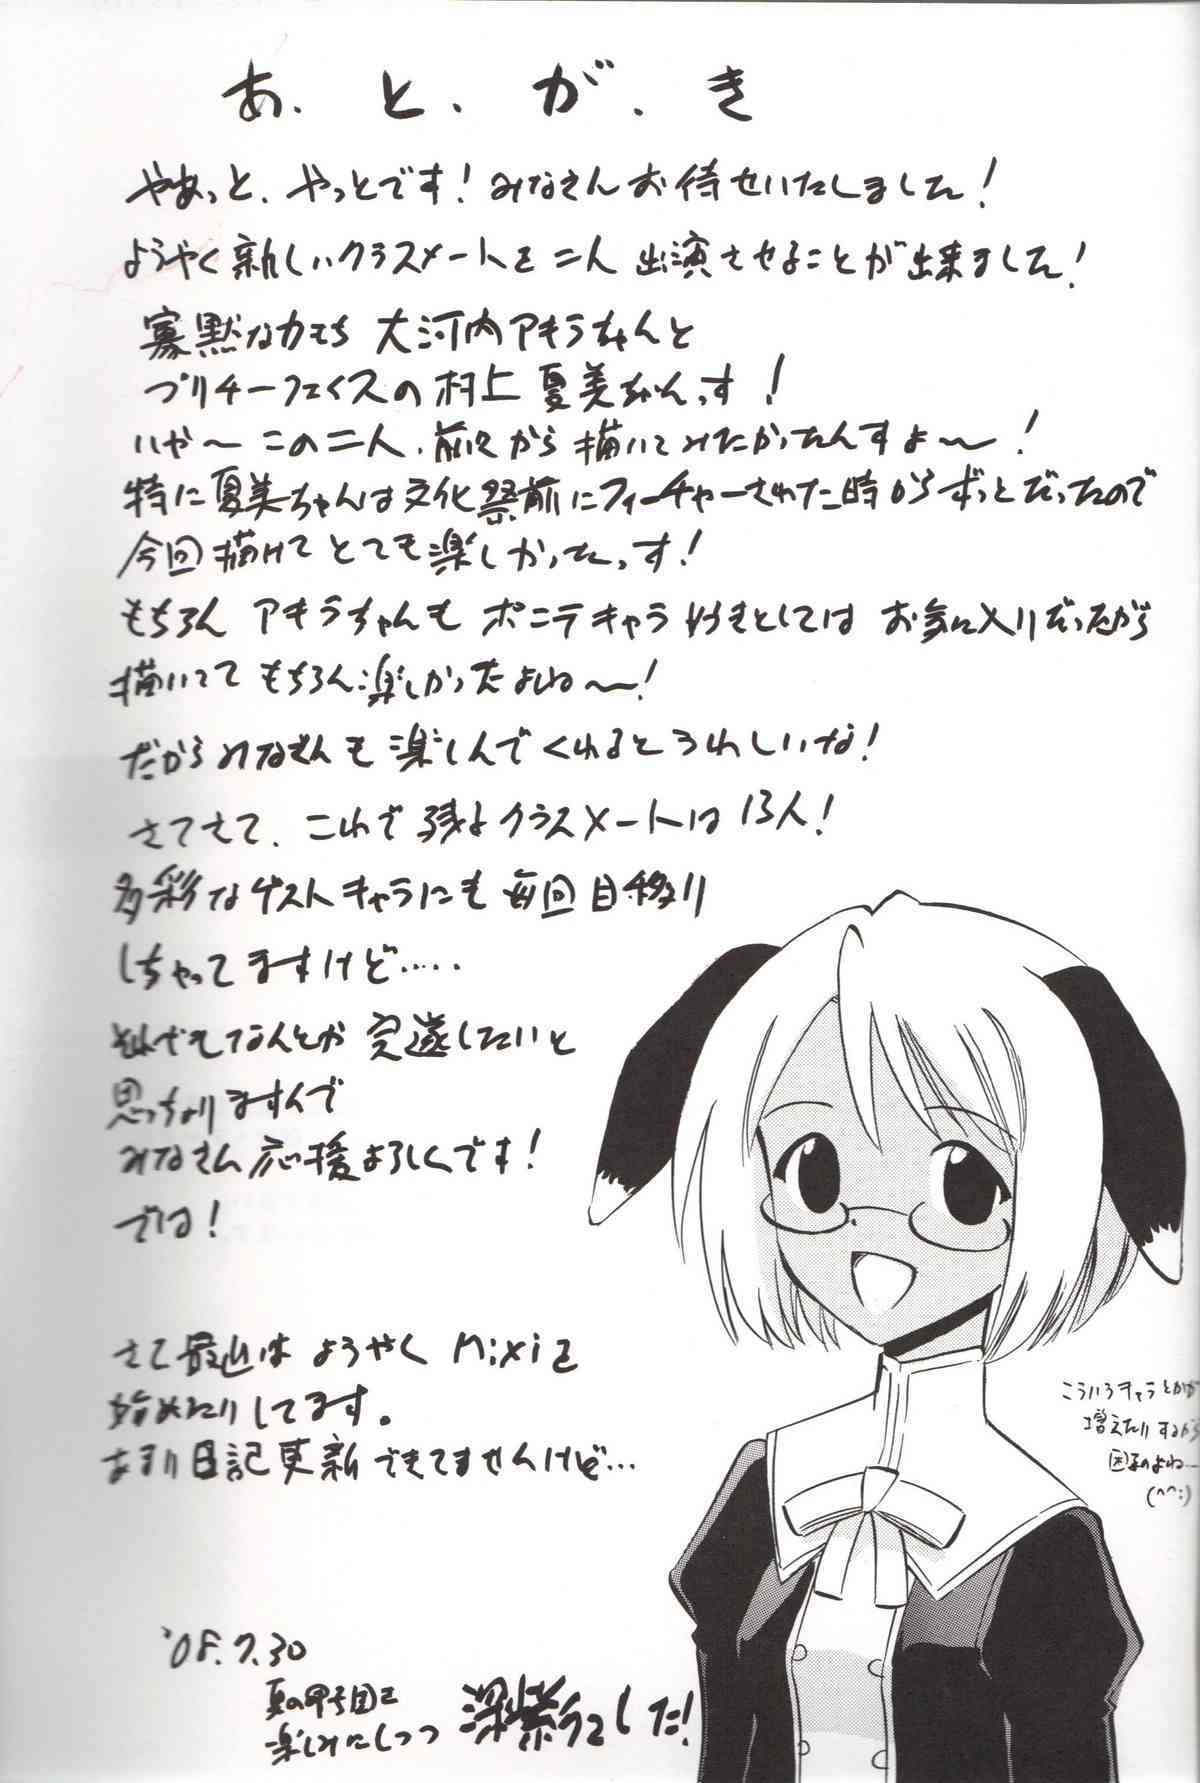 あ、と、が、き
やあっと、やっとです!みなさんお待せいたしました!
ようやく新しいクラスメートを二人出演させることが出来ました!
寡黙な力もち 大河内アキラちゃんと
プリチーフェイスの村上夏美ちゃんっす!
いや〜この二人、前々から描いてみたかったんすよ〜!
特に夏美ちゃんは文化祭前にフィーチャーされた時からずっとだったので
今回描けてとても楽しかったっす!
もちろんアキラちゃんもポニテキャラ好きとしてはお気に入りだったから
描いてて もちろん楽しかったよね〜!
だからみなさんも楽しんでくれるとうれしいな!
さてさて、これで残るクラスメートは13人!
多彩なゲストキャラにも毎回目移り
しちゃってますけど・・・・・
それでもなんとか完遂したいと
思っちょりますんで
みなさん応援よろしくです!
では!
さて最近はようやくMixiを
始めたりしてます。
あまり日記更新できてませんけど…
こういうキャラとかが
増えたりするから
困るのよね…
(^^;)
'08.7.30
夏の甲子園を
楽しみにしつつ 深紫でした!